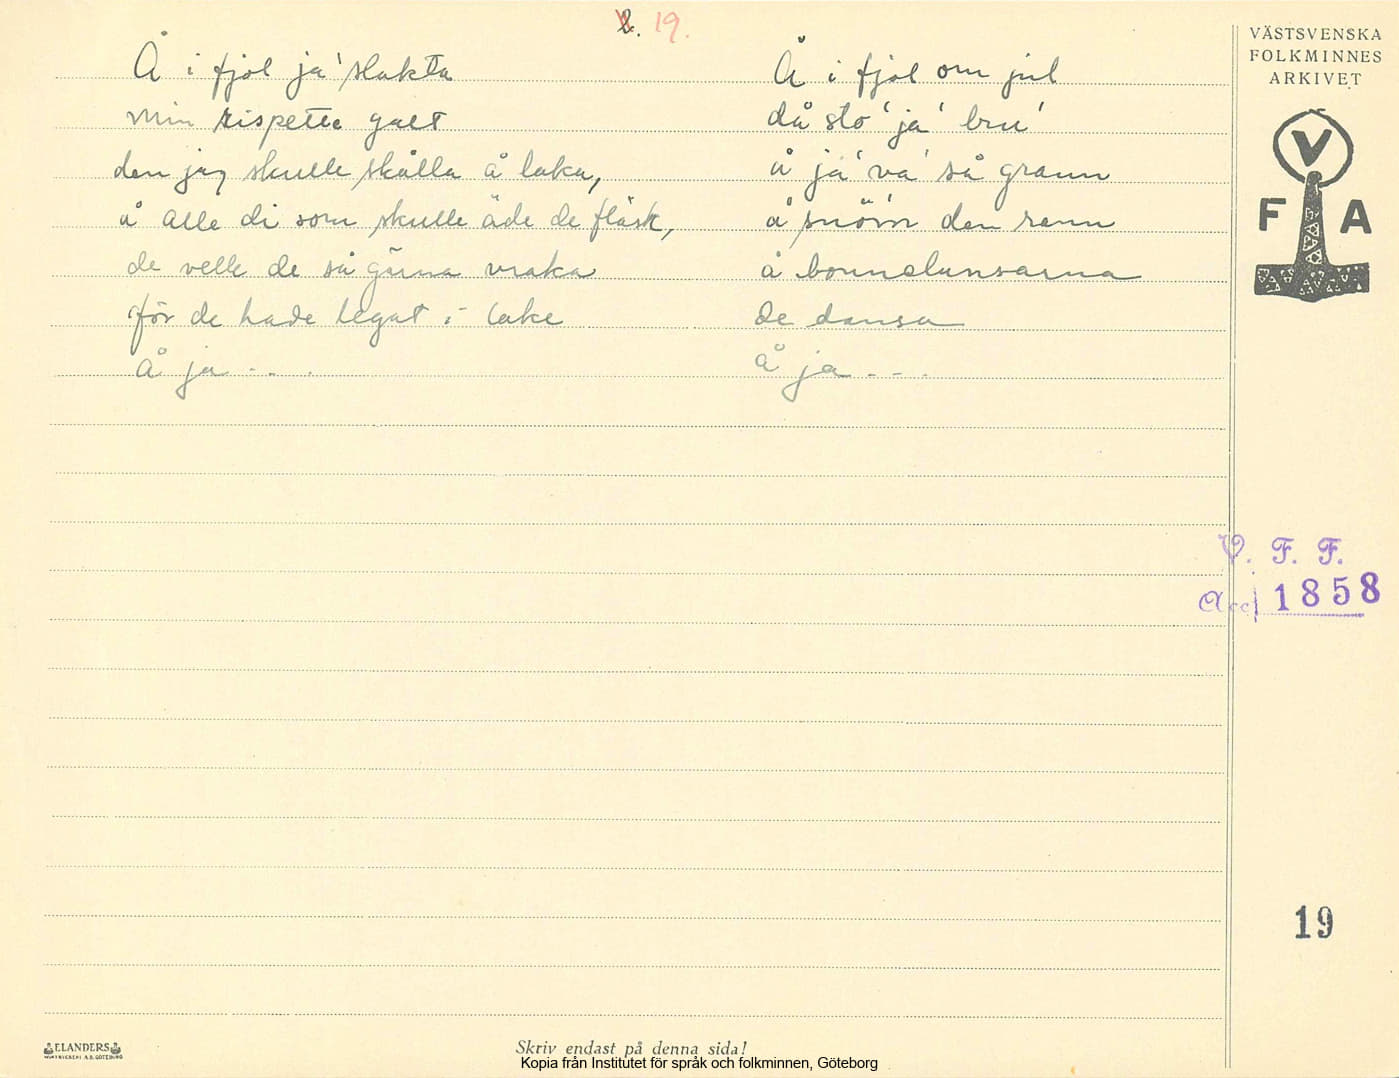 19.
Å i fjol ja' slakta
min rispetta galt
den jag skulle skålla å laka,
å alle di som skulle äde de fläsk,
de velle de så gärna vraka
för de hade legat i lake
å ja - - .
Å i fjol om jul
då sto' ja' bru'
å ja' va' så grann
å snör'n den rann
å bonnalunsarna
de dansa
å ja - - .
VÄSTSVENSKA
FOLKMINNES
ARKIVET
V
F A
V. F. F.
Acc 1858
19
ELANDERS
Skriv endast på denna sida!
Kopia från Institutet för språk och folkminnen, Göteborg